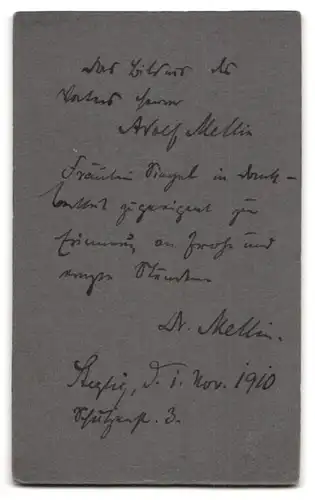 Das Bildnis des
Vaters Herrn
Adolf Mellin
Fräulein Siegel in Dank-
barkeit zugeeignet zur
Erinnerung an frohe und
ernste Stunden
Dr. Mellin.
Steglitz, d. 1. Nov. 1910
Schützenstr. 3.